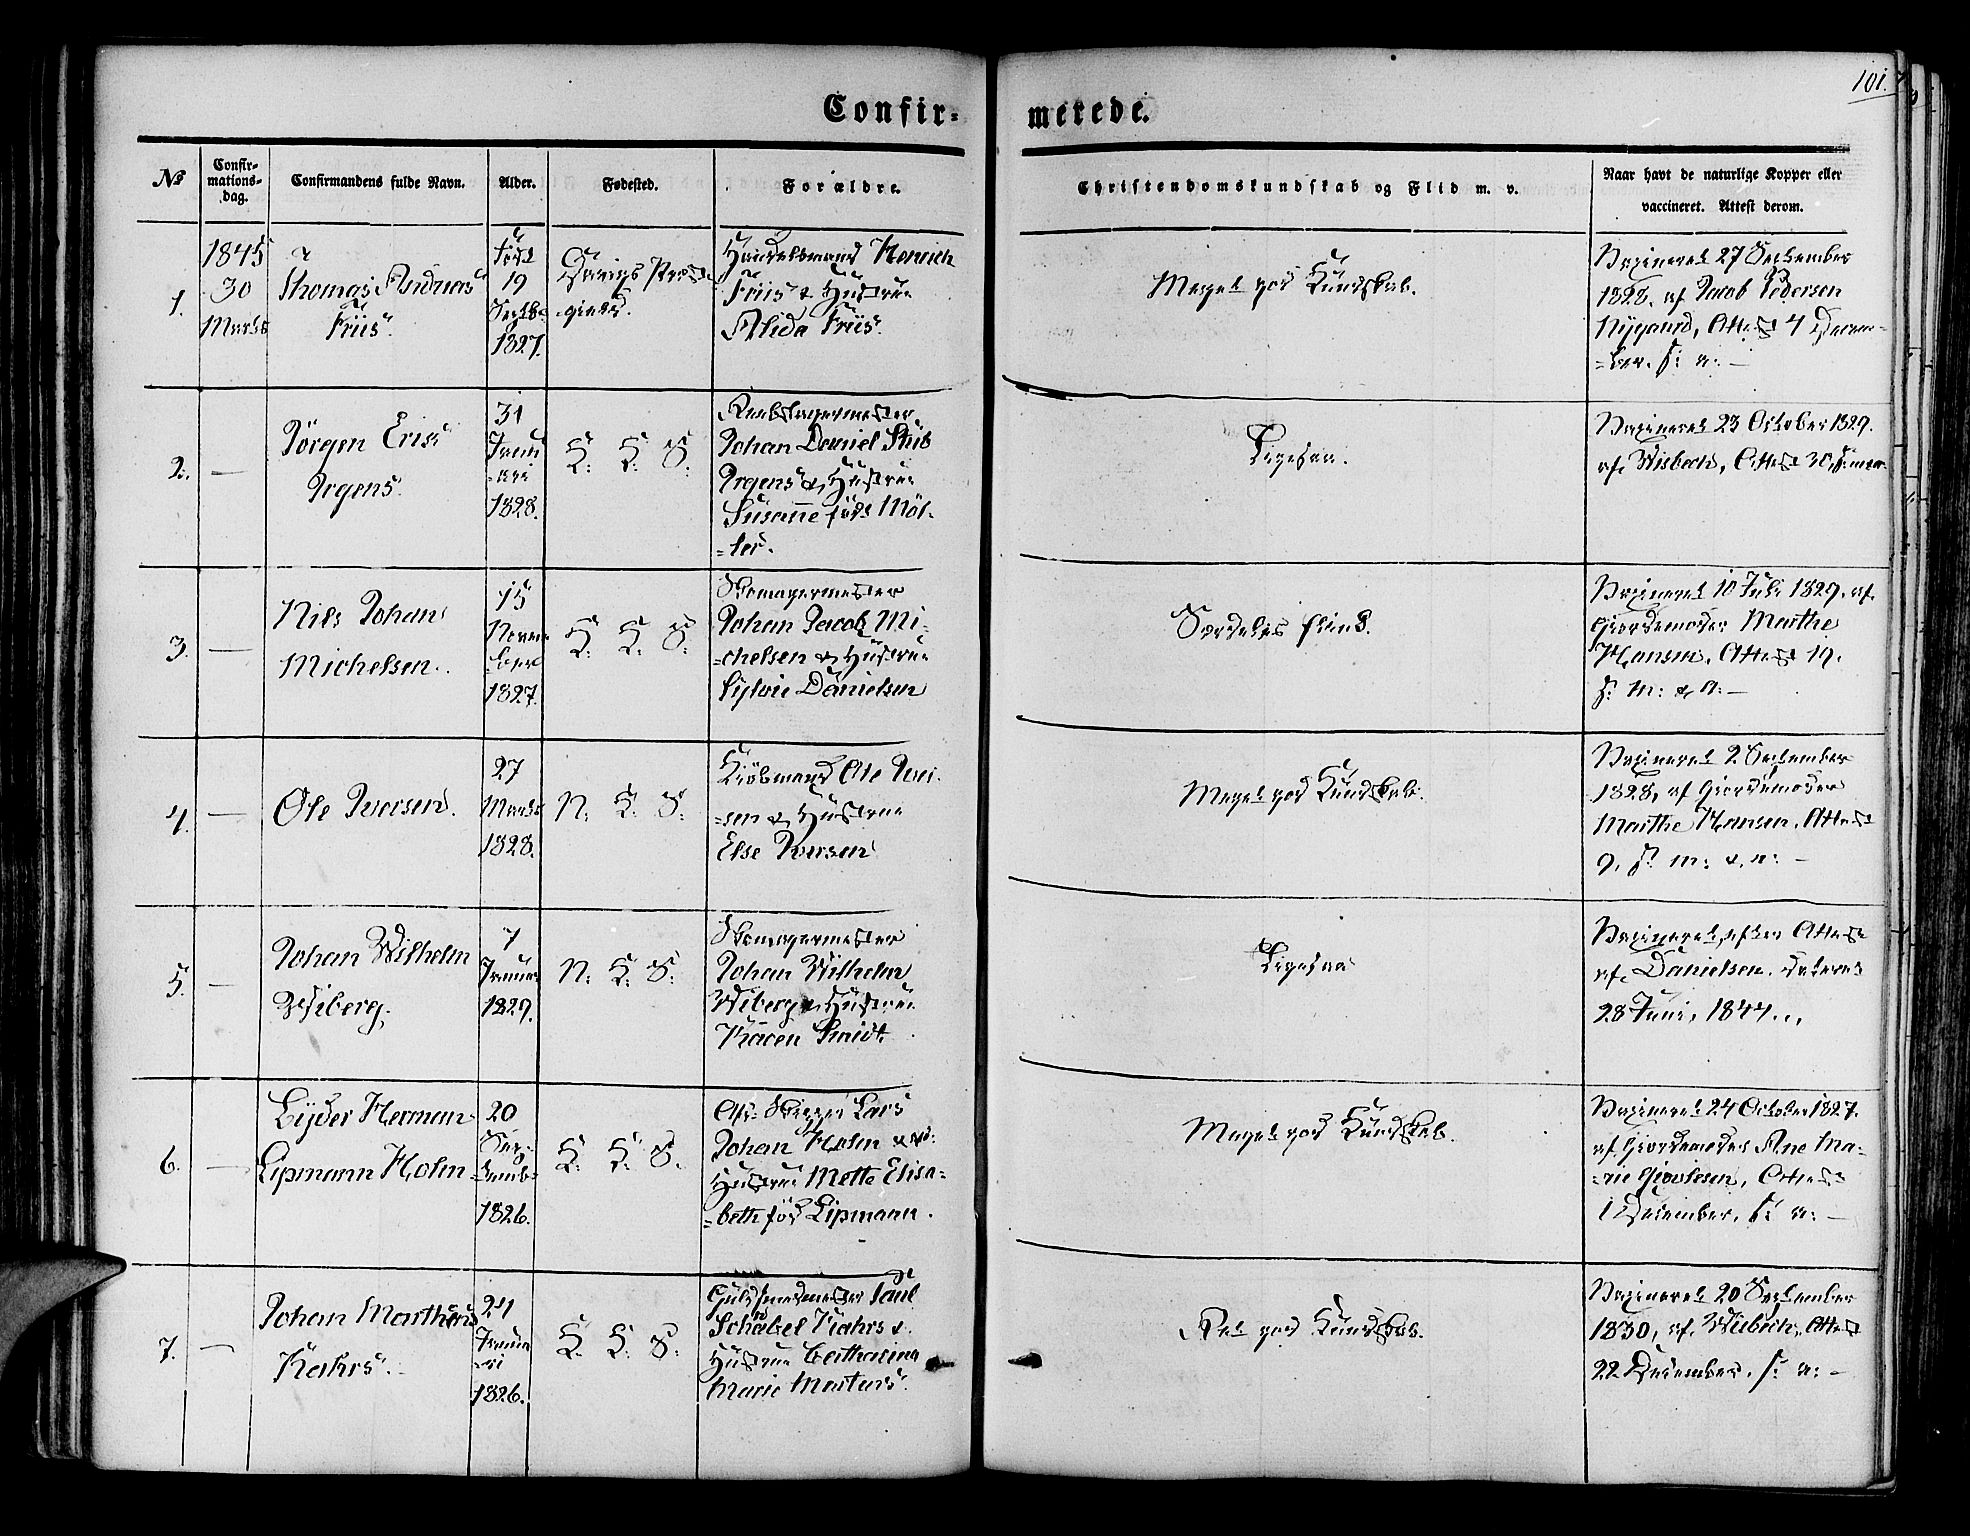 101.
Confir-
merede.
No
Confir-
mations-
dag.
Confirmandens fulde Navn.
Alder.
Fødested.
Forældre.
Christendomskundskab og Flid m. v.
Naar havt de naturlige Kopper eller
vaccineret. Attest derom.
1.
1845
30
Marts
Thomas Andreas
Friis.
født
19
Septbr
1827.
Handelsmand Henrich
Friis & Hustrue
Alida Friis.
Meget god Kundskab.
Vaxineret 27 September
1828. af Jacob Pedersen
Nygaard, Attest 4 Decem-
=ber. s: a: —
2. —
Jörgen Eris
Irgens.
31
Janu
=ari
1828.
K: K: S:
Reebslagermester
Johan Daniel Stub
Irgens & Hustrue
Susanne föds Möl-
=ler.
Ligesaa.
Vaxineret 23 October 1829.
af Wisbech, Attest 30
3. —
Nils Johan
Michelsen.
15
Novem
=ber
1827.
K: K: S:
Skomagermester
Johan Jacob Mi-
=chelsen & Hustrue
Sylvie Danielsen
Særdeles flink.
Vaxineret 10 Juli 1829. af
Giordemoder Marthe
Hansen, Attest 19.
s: m: & a: —
4. —
Ole Iversen.
27
Marts
1828.
N: K: S:
Kiöbmand Ole Iver-
=sen & Hustrue
Else Iversen
Meget god Kundskab.
Vaxineret 2 September
1828, af Giordemoder
Marthe Hansen, Attest
9, s: m: & a: —
5. —
Johan Wilhelm
Wiberg.
7
Januar
1829.
N: K: S:
Skomagermester
Johan Wilhelm
Wiberg & Hustrue
Karen Smidt.
Ligesaa
Vaxineret, efter Attest
af Danielsen. dateret
28 Juni, 1844.
6. —
Lyder Herman
Lipmann Holm
20
Sep-
=temb=
1826.
K: K: S:
Afd: Skipper Lars
Johan Holm &
Hustrue Mette Elisa-
=beth föd Lipmann.
Meget god Kundskab.
Vaxineret 24 October 1827.
af Giordemoder Ane Ma-
=rie Attest
1 December, s: a: —
7. —
Johan Martinus
Kahrs.
24
Janua
=ri
1826.
K: K: S:
Guldsmedmester Paul
Schabel Kahrs &
Hustrue Catharina
Marie Martens.
Ret god Kundskab.
Vaxineret 20 September
1830, af Wisbech, Attest
22 December, s: a: —